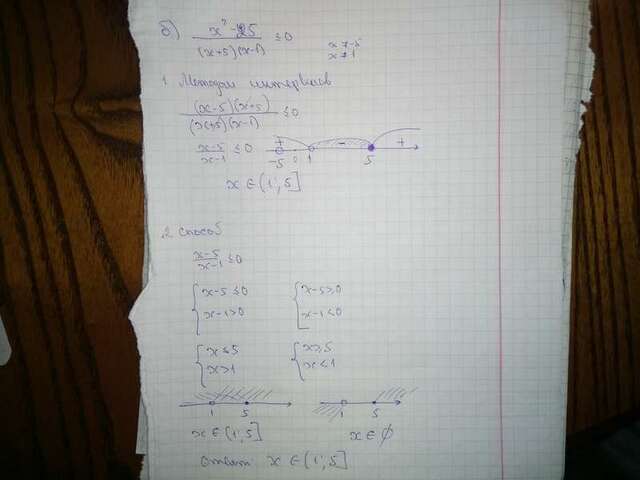 б) x² - 25 / (x+5)(x-1) ≤ 0
x ≠ -5
x ≠ 1
1 Методом интервалов
(x-5)(x+5) / (x+5)(x-1) ≤ 0
x-5 / x-1 ≤ 0
+ - +
-5 0 1 5
x ∈ (1; 5]
2 способ
x-5 / x-1 ≤ 0
{ x-5 ≤ 0 { x-5 ≥ 0
x-1 > 0 x-1 < 0
{ x ≤ 5 { x ≥ 5
x > 1 x < 1
1 5 1 5
x ∈ (1; 5] x ∈ ∅
Ответ: x ∈ (1; 5]